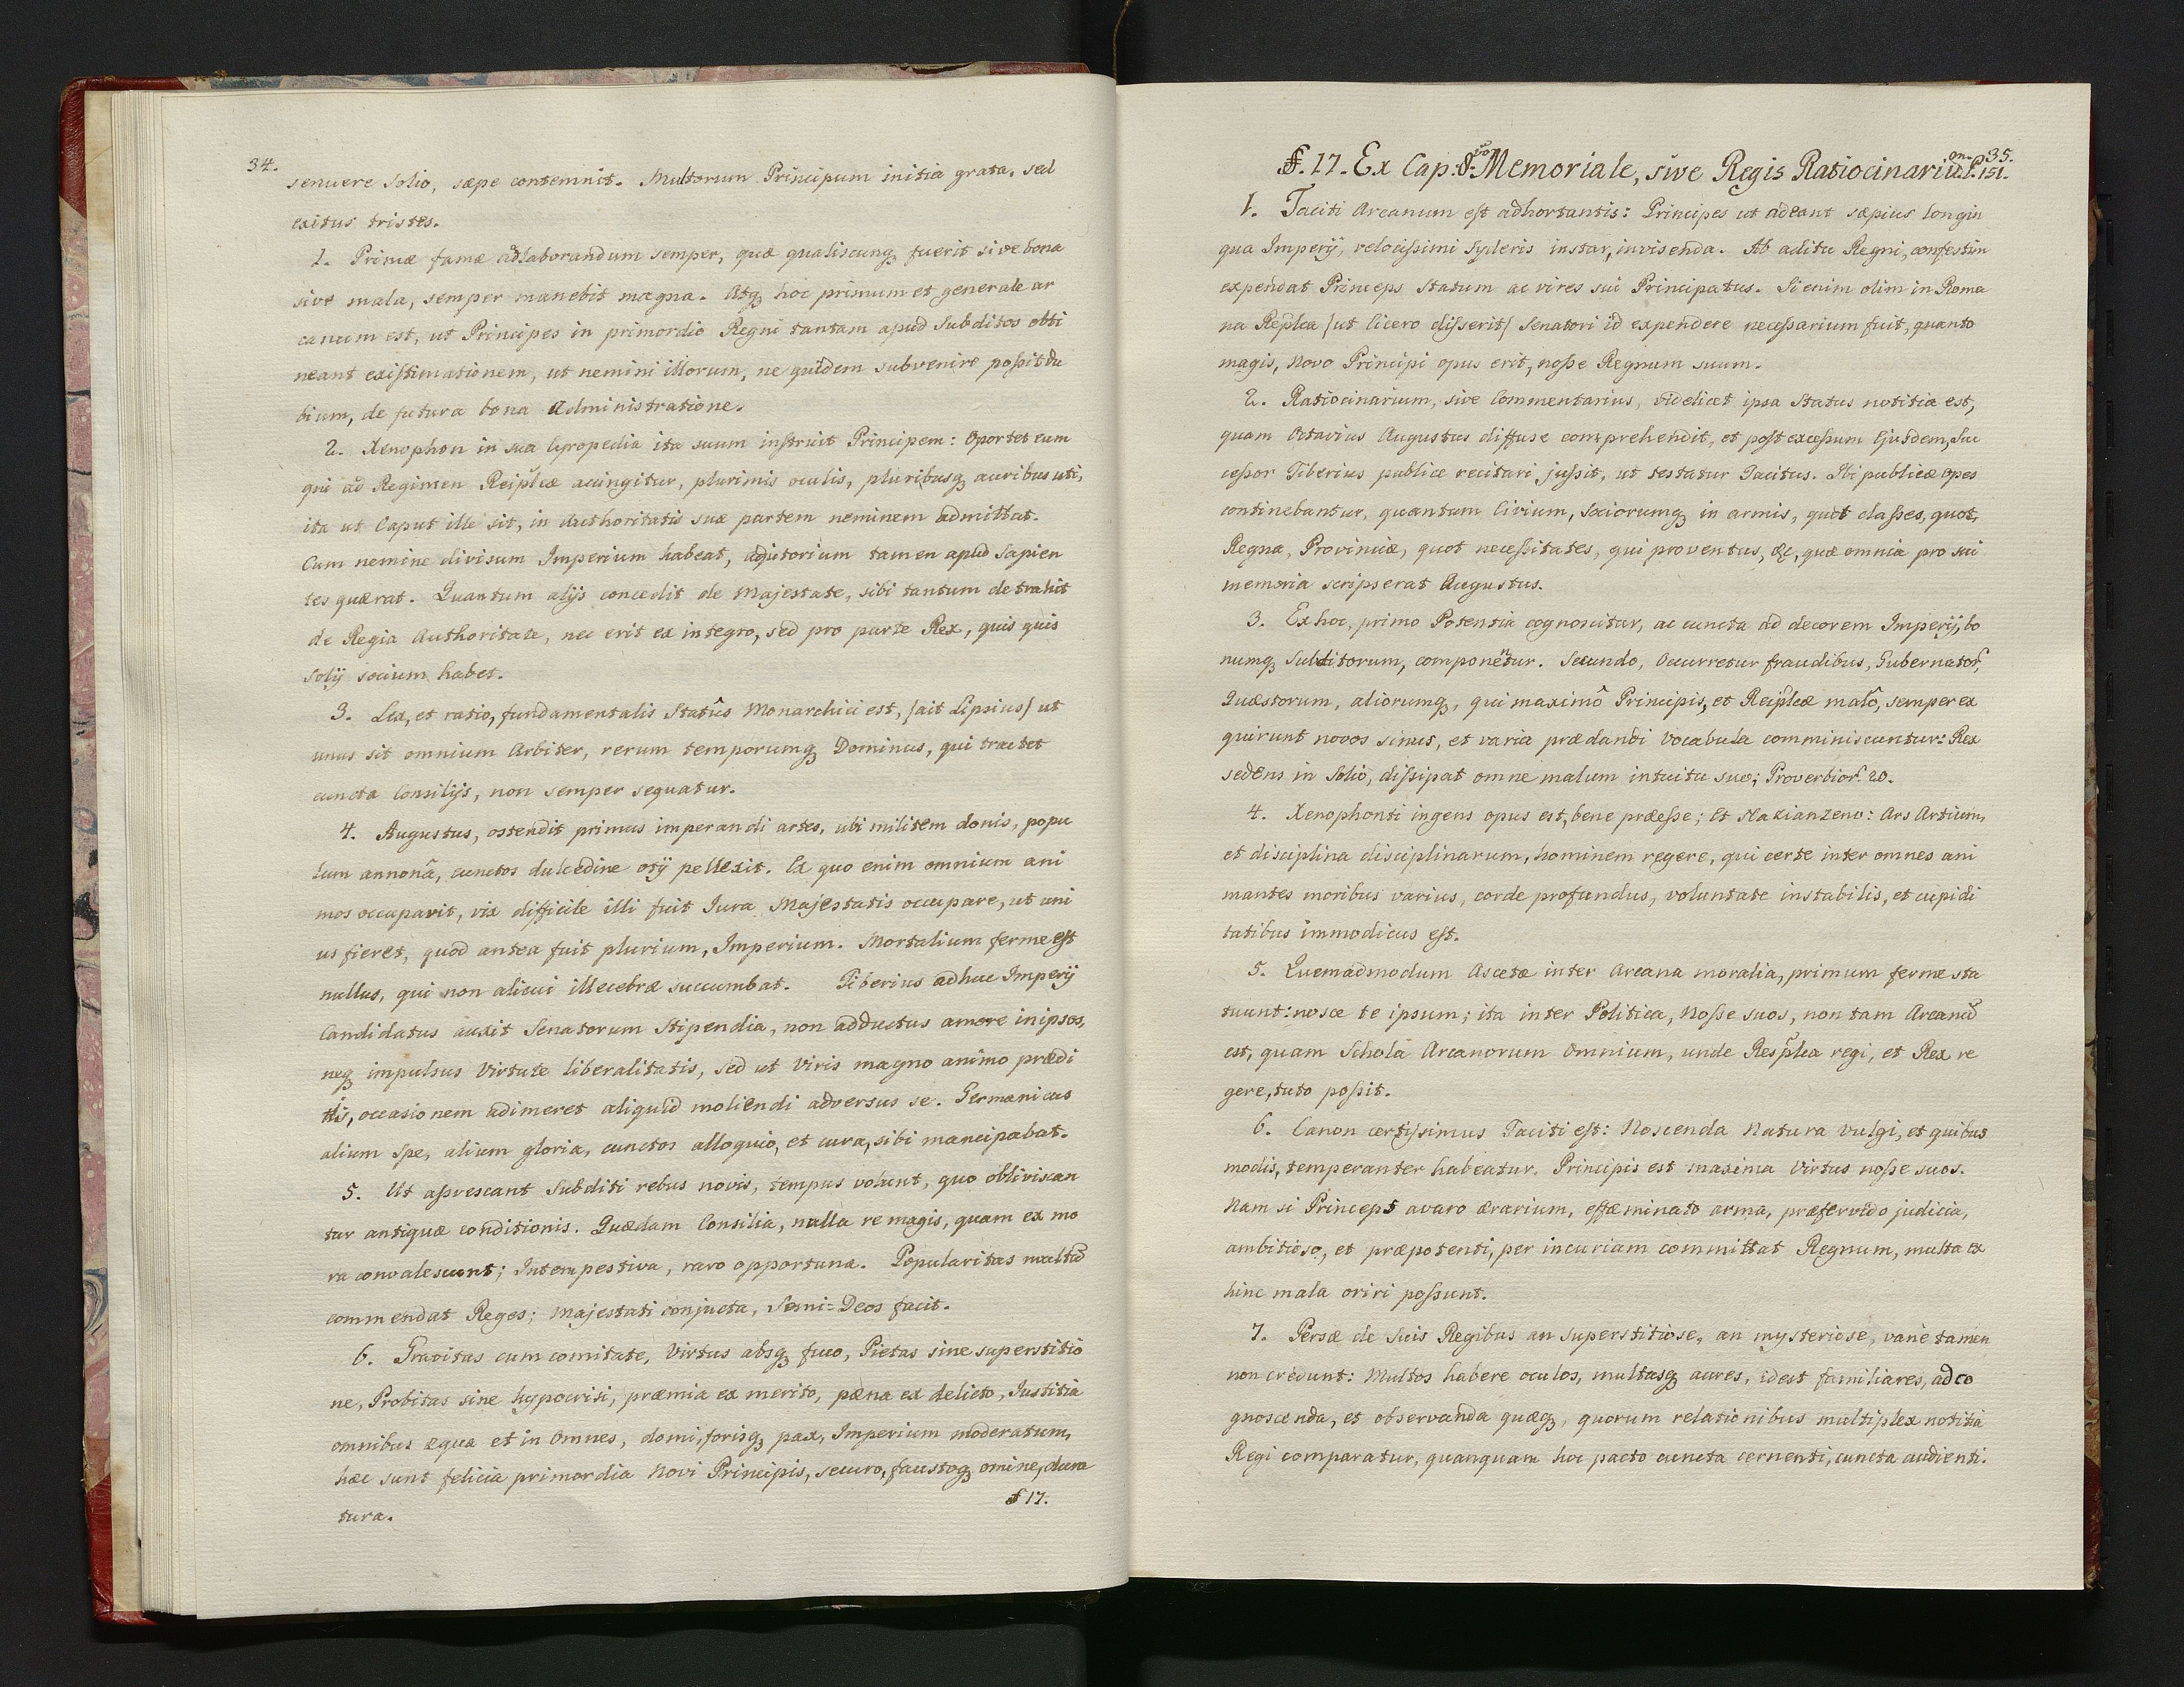 34.
senuere Solio, sæpe contemnit. Multorum Principum initia grata, sed
exitus tristes.
1. Primæ famæ adlaborandum semper, quæ qualiscunq, fuerit sive bona
sive mala, semper manebit magna. Atq, hoc primum et generale ar
canum est, ut Principes in primordio Regni tantam apud Subditos obti
neant existimationem, ut nemini illorum, ne quidem subvenire possit du
bium, de futura bona Administratione.
2. Xenophon in sua Cyropedia ita suum instruit Principem: Oportet eum
qui ad Regimen Reiplcæ accingitur, plurimis oculis, pluribusq, auribus uti,
ita ut Caput ille sit, in Authoritatis suæ partem neminem admittat.
Cum nemine divisum Imperium habeat, adjutorium tamen apud Sapien
tes quærat. Quantum alijs concedit de Majestate, sibi tantum detrahit
de Regia Authoritate, nec erit ex integro, sed pro parte Rex, quis quis
Solij socium habet.
3. Lex, et ratio, fundamentalis Statûs Monarchici est, [ait Lipsius] ut
unus sit omnium Arbiter, rerum temporumq, Dominus, qui tractet
cuncta Consilijs, non semper sequatur.
4. Augustus, ostendit primus imperandi artes, ubi militem donis, popu
lum annonâ, cunctos dulcedine otij pellexit. Ex quo enim omnium ani
mos occuparit, vix difficile illi fuit Jura Majestatis occupare, ut uni
us fieret, quod antea fuit plurium, Imperium. Mortalium ferme est
nullus, qui non alicui illecebræ succumbat. Tiberius adhuc Imperij
Candidatus auxit Senatorum Stipendia, non adductus amore in ipsos,
neq, impulsus Virtute liberalitatis, sed ut Viris magno animo prædi
tis, occasionem adimeret aliquid moliendi adversus se. Germanicus
alium Spe, alium gloria, cunctos alloquio, et cura, sibi mancipabat.
5. Ut assvescant Subditi rebus novis, tempus volunt, quo obliviscan
tur antiquæ conditionis. Quædam Consilia, nulla re magis, quam ex mo
ra convalescunt; Intempestiva, raro opportuna. Popularitas multũ
commendat Reges; Majestati conjucta, Semi=Deos facit.
6. Gravitas cum comitate, Virtus absq, fuco, Pietas sine superstitio
ne, Probitas sine hypocrisi, præmia ex merito, pæna ex delicto, Justitia
omnibus æqua et in Omnes, domi, forisq, pax, Imperium moderatum,
hæc sunt felicia primordia Novi Principis, securo, faustoq, omine, dura
tura.
§ 17.
35.
§. 17. Ex Cap: 8vo Memoriale, sive Regis Ratiocinarium. P. 151.
1. Taciti Arcanum est adhortantis: Principes ut adeant sæpius longin
qua Imperij, velocissimi Syderis instar, invisenda. Ab aditu Regni, confestim
expendat Princeps Statum ac vires sui Principatus. Si enim olim in Roma
na Replca [ut Cicero disserit] Senatori id expendere necessarium fuit, quanto
magis, Novo Principi opus erit, nosse Regnum suum.
2. Ratiocinarium, sive Commentarius, videlicet ipsa Status notitia est,
quam Octavius Augustus diffuse comprehendit, et post excessum Ejusdem, Suc
cessor Tiberius publice recitari jussit, ut testatur Tacitus. Ibi publicæ opes
continebantur, quantum Civium, Sociorumq, in armis, quot classes, quot,
Regna, Provinciæ, quot necessitates, qui proventus, &c, quæ omnia pro sui
memoria scripserat Augustus.
3. Ex hoc, primo Potentia cognoscitur, ac cuncta ad decorem Imperij, bo
numq, Subditorum, componentur. Secundo, Occurretur fraudibus, Gubernator,
Quæstorum, aliorumq, qui maximô Principis, et Reiplcæ malô, semper ex
quirunt novos sinus, et varia prædandi Vocabula comminiscuntur: Rex
sedens in Solio, dissipat omne malum intuitu suo; Proverbior. 20.
4. Xenophonti ingens opus est, bene præesse; Et Nazianzeno: Ars Artium,
et disciplina disciplinarum, hominem regere, qui certe inter omnes ani
mantes moribus varius, corde profundus, voluntate instabilis, et cupidi
tatibus immodicus est.
5. Quemadmodum Ascetæ inter Arcana moralia, primum ferme sta
tuunt: nosce te ipsum; ita inter Politica, Nosse suos, non tam Arcanũ
est, quam Schola Arcanorum Omnium, unde Resplca regi, et Rex re
gere, tuto possit.
6. Canon certissimus Taciti est: Noscenda Natura Vulgi, et quibus
modis, temperanter habeatur. Principis est maxima Virtus nosse suos.
Nam si Princeps avaro ærarium, effæminato arma, præfervido judicia,
ambitioso, et præpotenti, per incuriam committat Regnum, multa ex
hinc mala oriri possunt.
7. Persæ de Suis Regibus an superstitiose, an mysteriose, vane tamen
non credunt: Multos habere oculos, multasq, aures, idest familiares, ad co
gnoscenda, et observanda quæq, quorum relationibus multiplex notitia
Regi comparatur, quanquam hoc pacto cuncta cernenti, cuncta audienti.